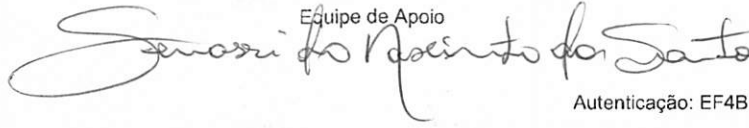 Equipe de Apoio
do Nascimento dos Santo
Autenticação: EF4B